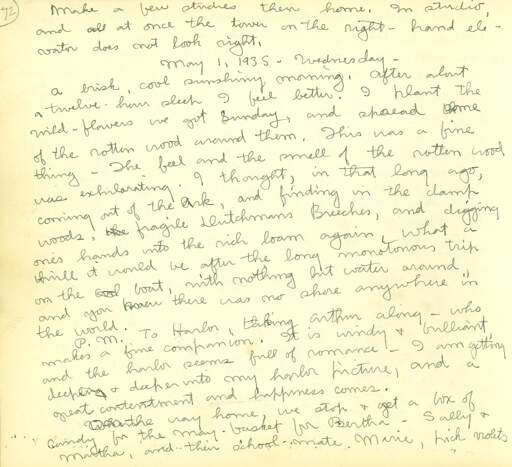 72
Make a few studies then home. In studio,
and all at once the tower on the right-hand ele-
vator does not look right.
May 1, 1935 - Wednesday -
a brisk, cool sunshiny morning. After about
a twelve-hour sleep I feel better. I plant the
wild-flowers we got Sunday, and spread some
of the rotten wood around them. This was a fine
thing - The feel and the smell of the rotten wood
was exhilarating. I thought, in that long ago,
coming out of the Ark, and finding in the damp
woods, the fragile Dutchmans Breeches, and digging
one's hands into the rich loam again, what a
thrill it would be after the long monotonous trip
on the boat, with nothing but water around,
and you knew there was no shore anywhere in
the world.
P.M. To Harbor, taking Arthur along - who
makes a fine companion. It is windy & brilliant,
and the harbor seems full of romance - I am getting
deeper & deeper into my harbor picture, and a
great contentment and happiness comes.
On the way home, we stop & get a box of
candy for the May-basket for Bertha - Sally &
Martha, and their school-mate. Mimi, pick violets